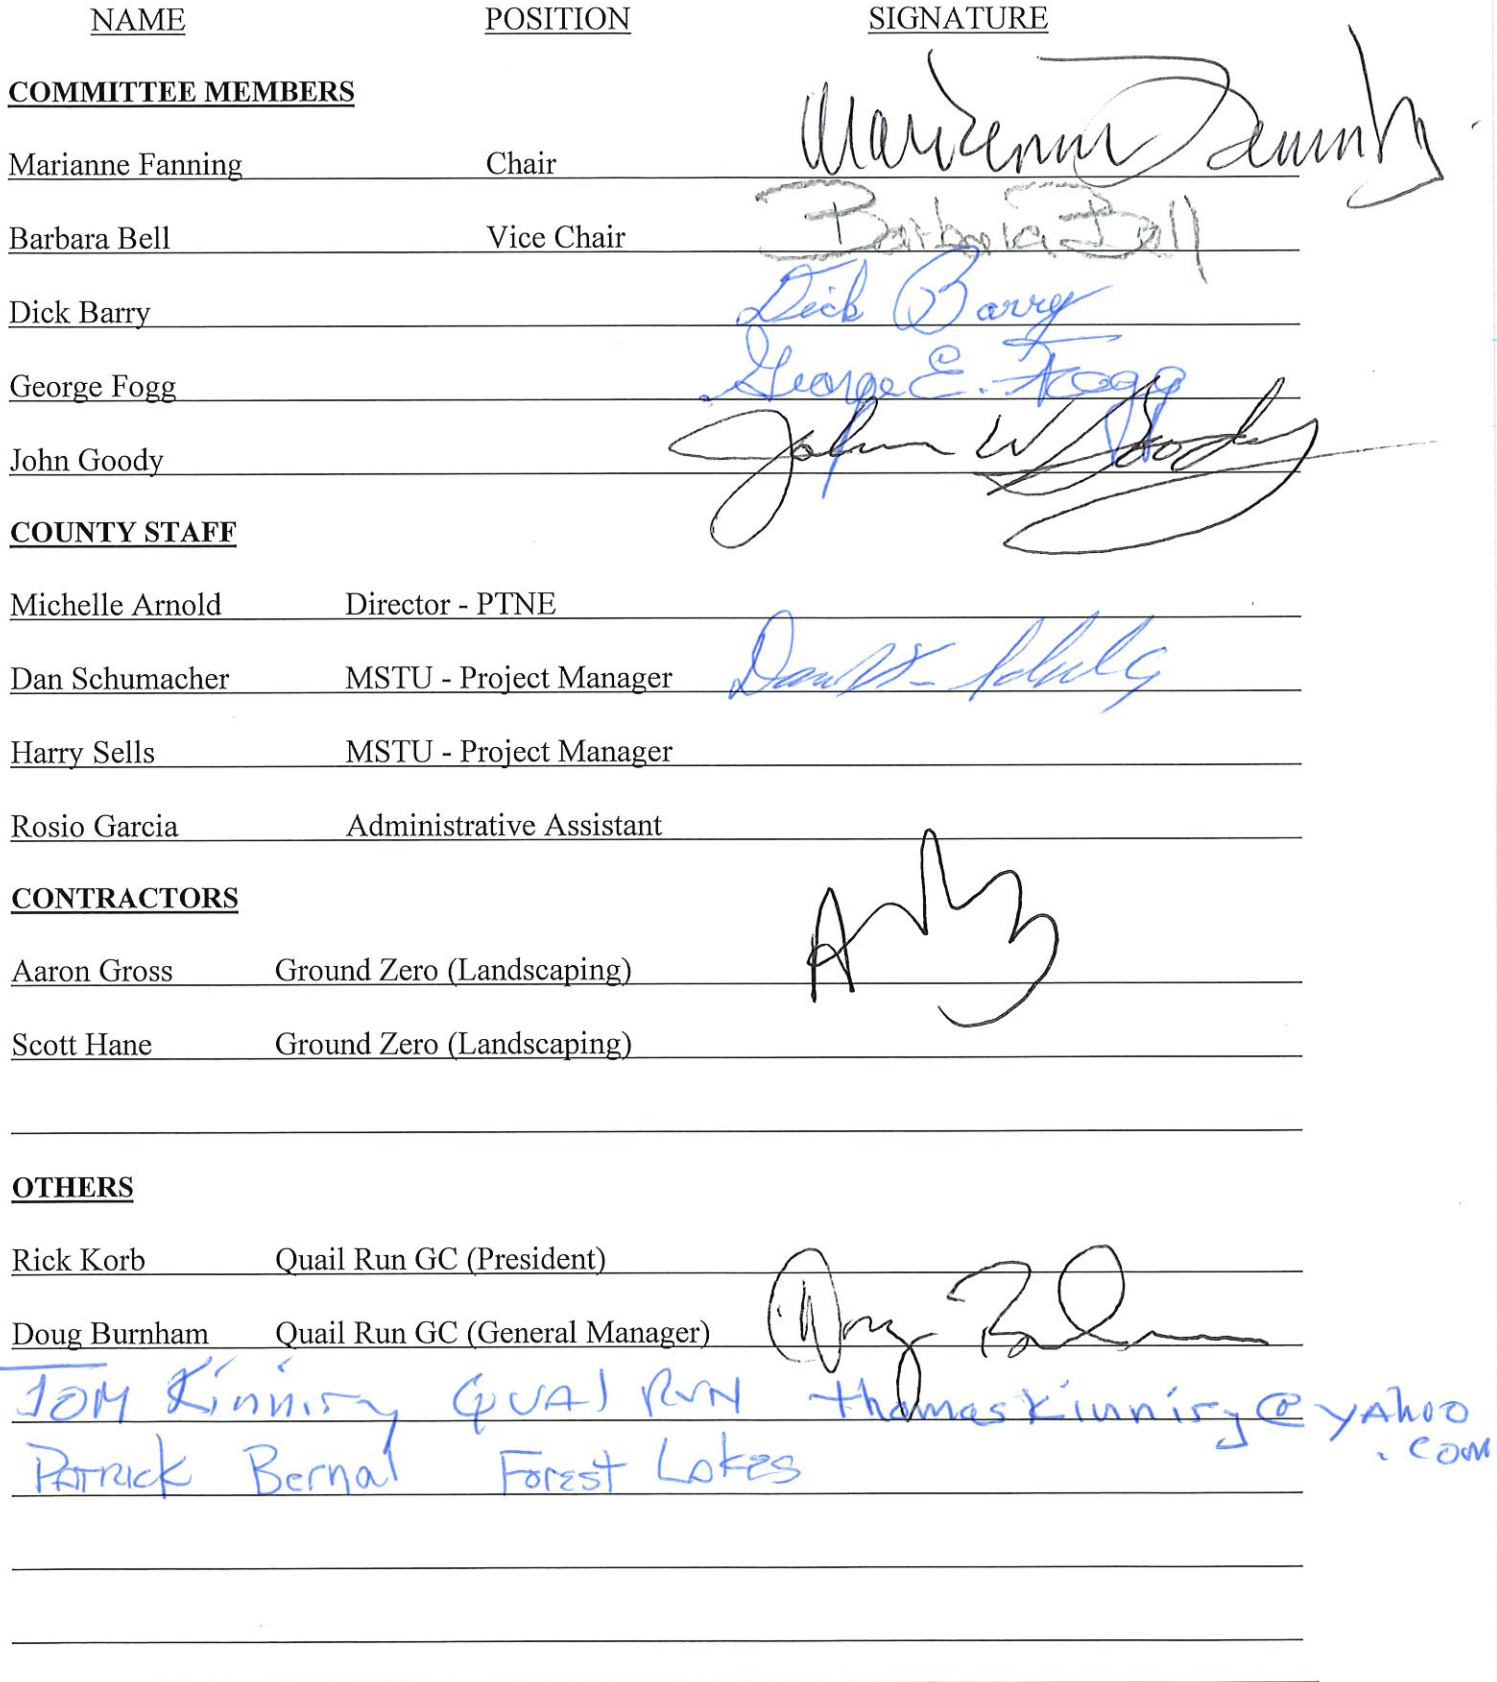 NAME POSITION SIGNATURE
COMMITTEE MEMBERS
Marianne Fanning Chair Marianne Fanning
Barbara Bell Vice Chair Barbara Bell
Dick Barry Dick Barry
George Fogg George E. Fogg
John Goody John W Goody
COUNTY STAFF
Michelle Arnold Director - PTNE
Dan Schumacher MSTU - Project Manager
Harry Sells MSTU - Project Manager
Rosio Garcia Administrative Assistant
CONTRACTORS
Aaron Gross Ground Zero (Landscaping)
Scott Hane Ground Zero (Landscaping)
OTHERS
Rick Korb Quail Run GC (President)
Doug Burnham Quail Run GC (General Manager)
TOM Kinniry QUAI RUN thomaskinniry@yahoo
.com
PATRICK Bernal Forest Lakes